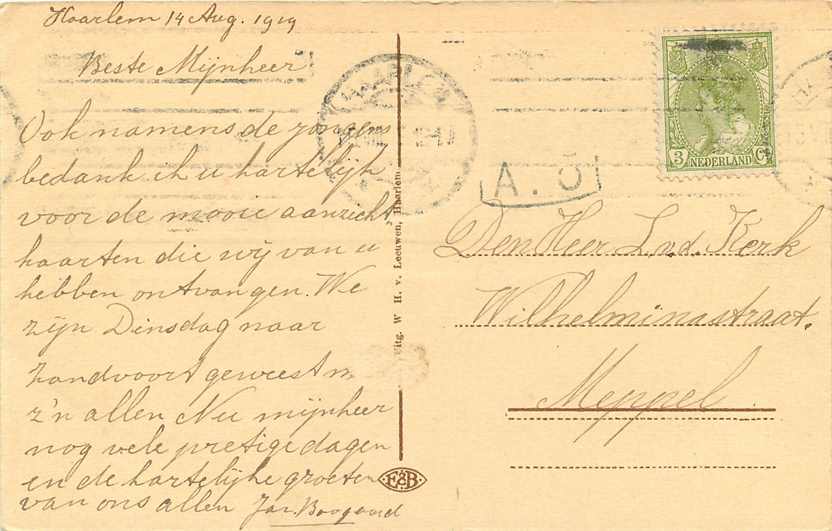 Haarlem 14 Aug. 1919
Beste Mijnheer
Ook namens de jongens
bedank ik u hartelijk
voor de mooie aanzicht
kaarten die wij van u
hebben ontvangen. We
zijn Dinsdag naar
Zandvoort geweest m
z'n allen Nu mijnheer
nog vele prettige dagen
en de hartelijke groeten
van ons allen Jan Boogaard
Uitg. W. H. v. Leeuwen, Haarlem
E&B
3 NEDERLAND Ct
A. 5
Den Heer L. v.d. Kerk
Wilhelminastraat.
Meppel